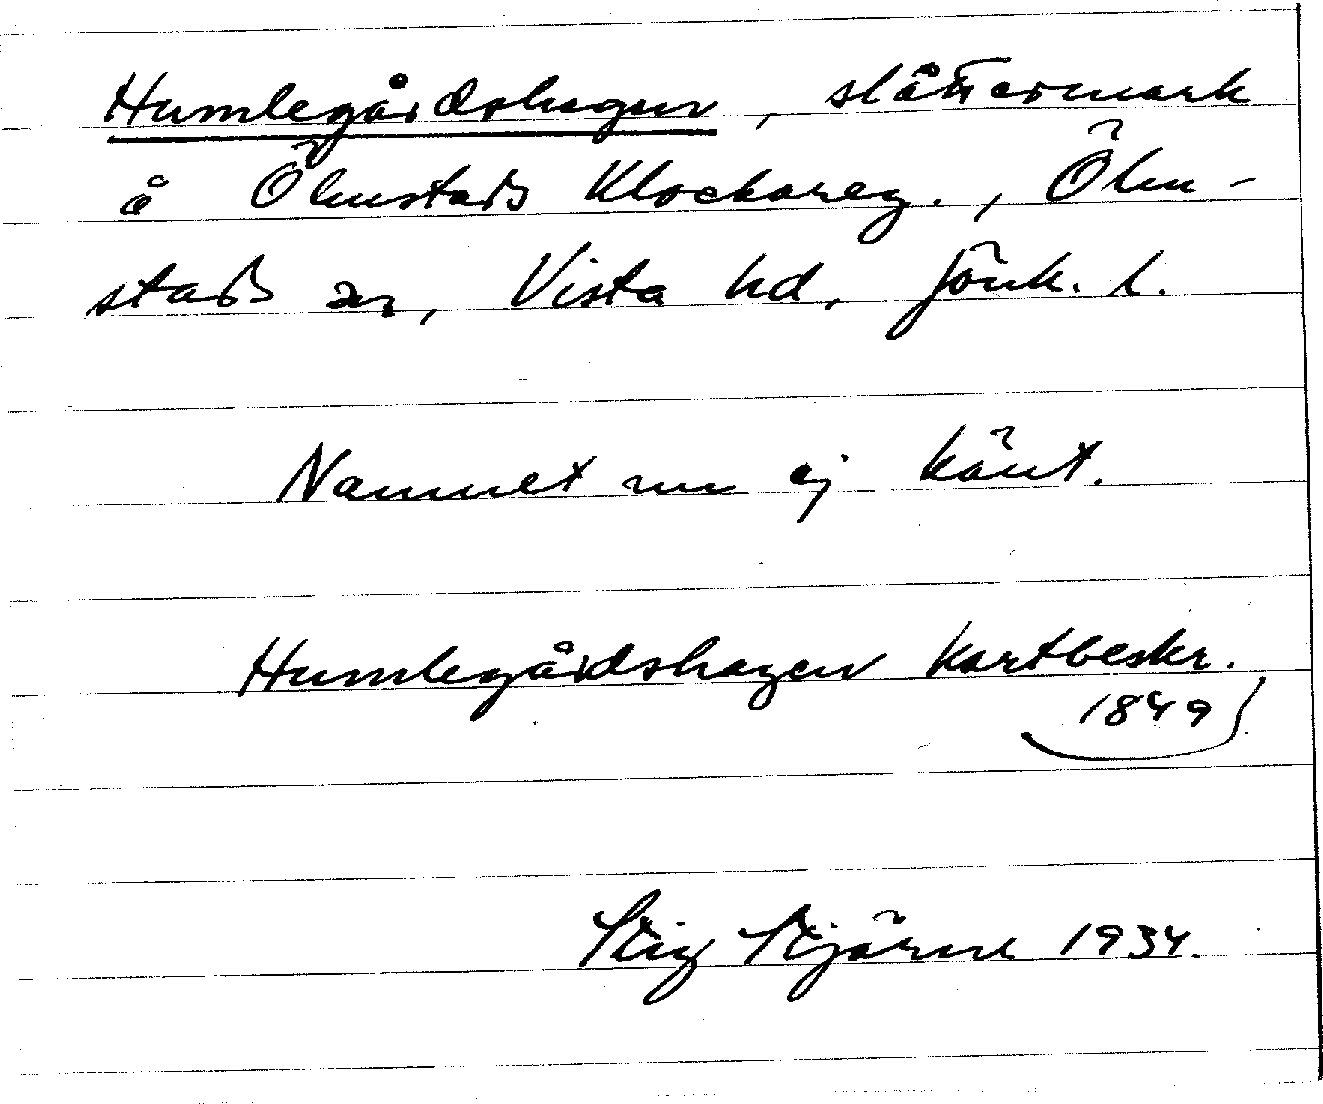 Humlegårdshagen, slåttermark
å Ölmstads Klockareg., Ölm-
stads sn, Vista hd, Jönk. l.
Namnet nu ej känt.
Humlegårdshagen kartbeskr.
1849
Stig Stjärne 1934.